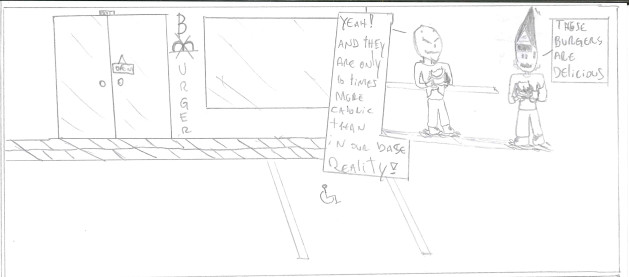 OPEN
B
U
R
G
E
R
YEAH!
AND THEY
ARE ONLY
10 TIMES
MORE
CALORIC
THAN
IN OUR BASE
REALITY!
THESE
BURGERS
ARE
DELICIOUS